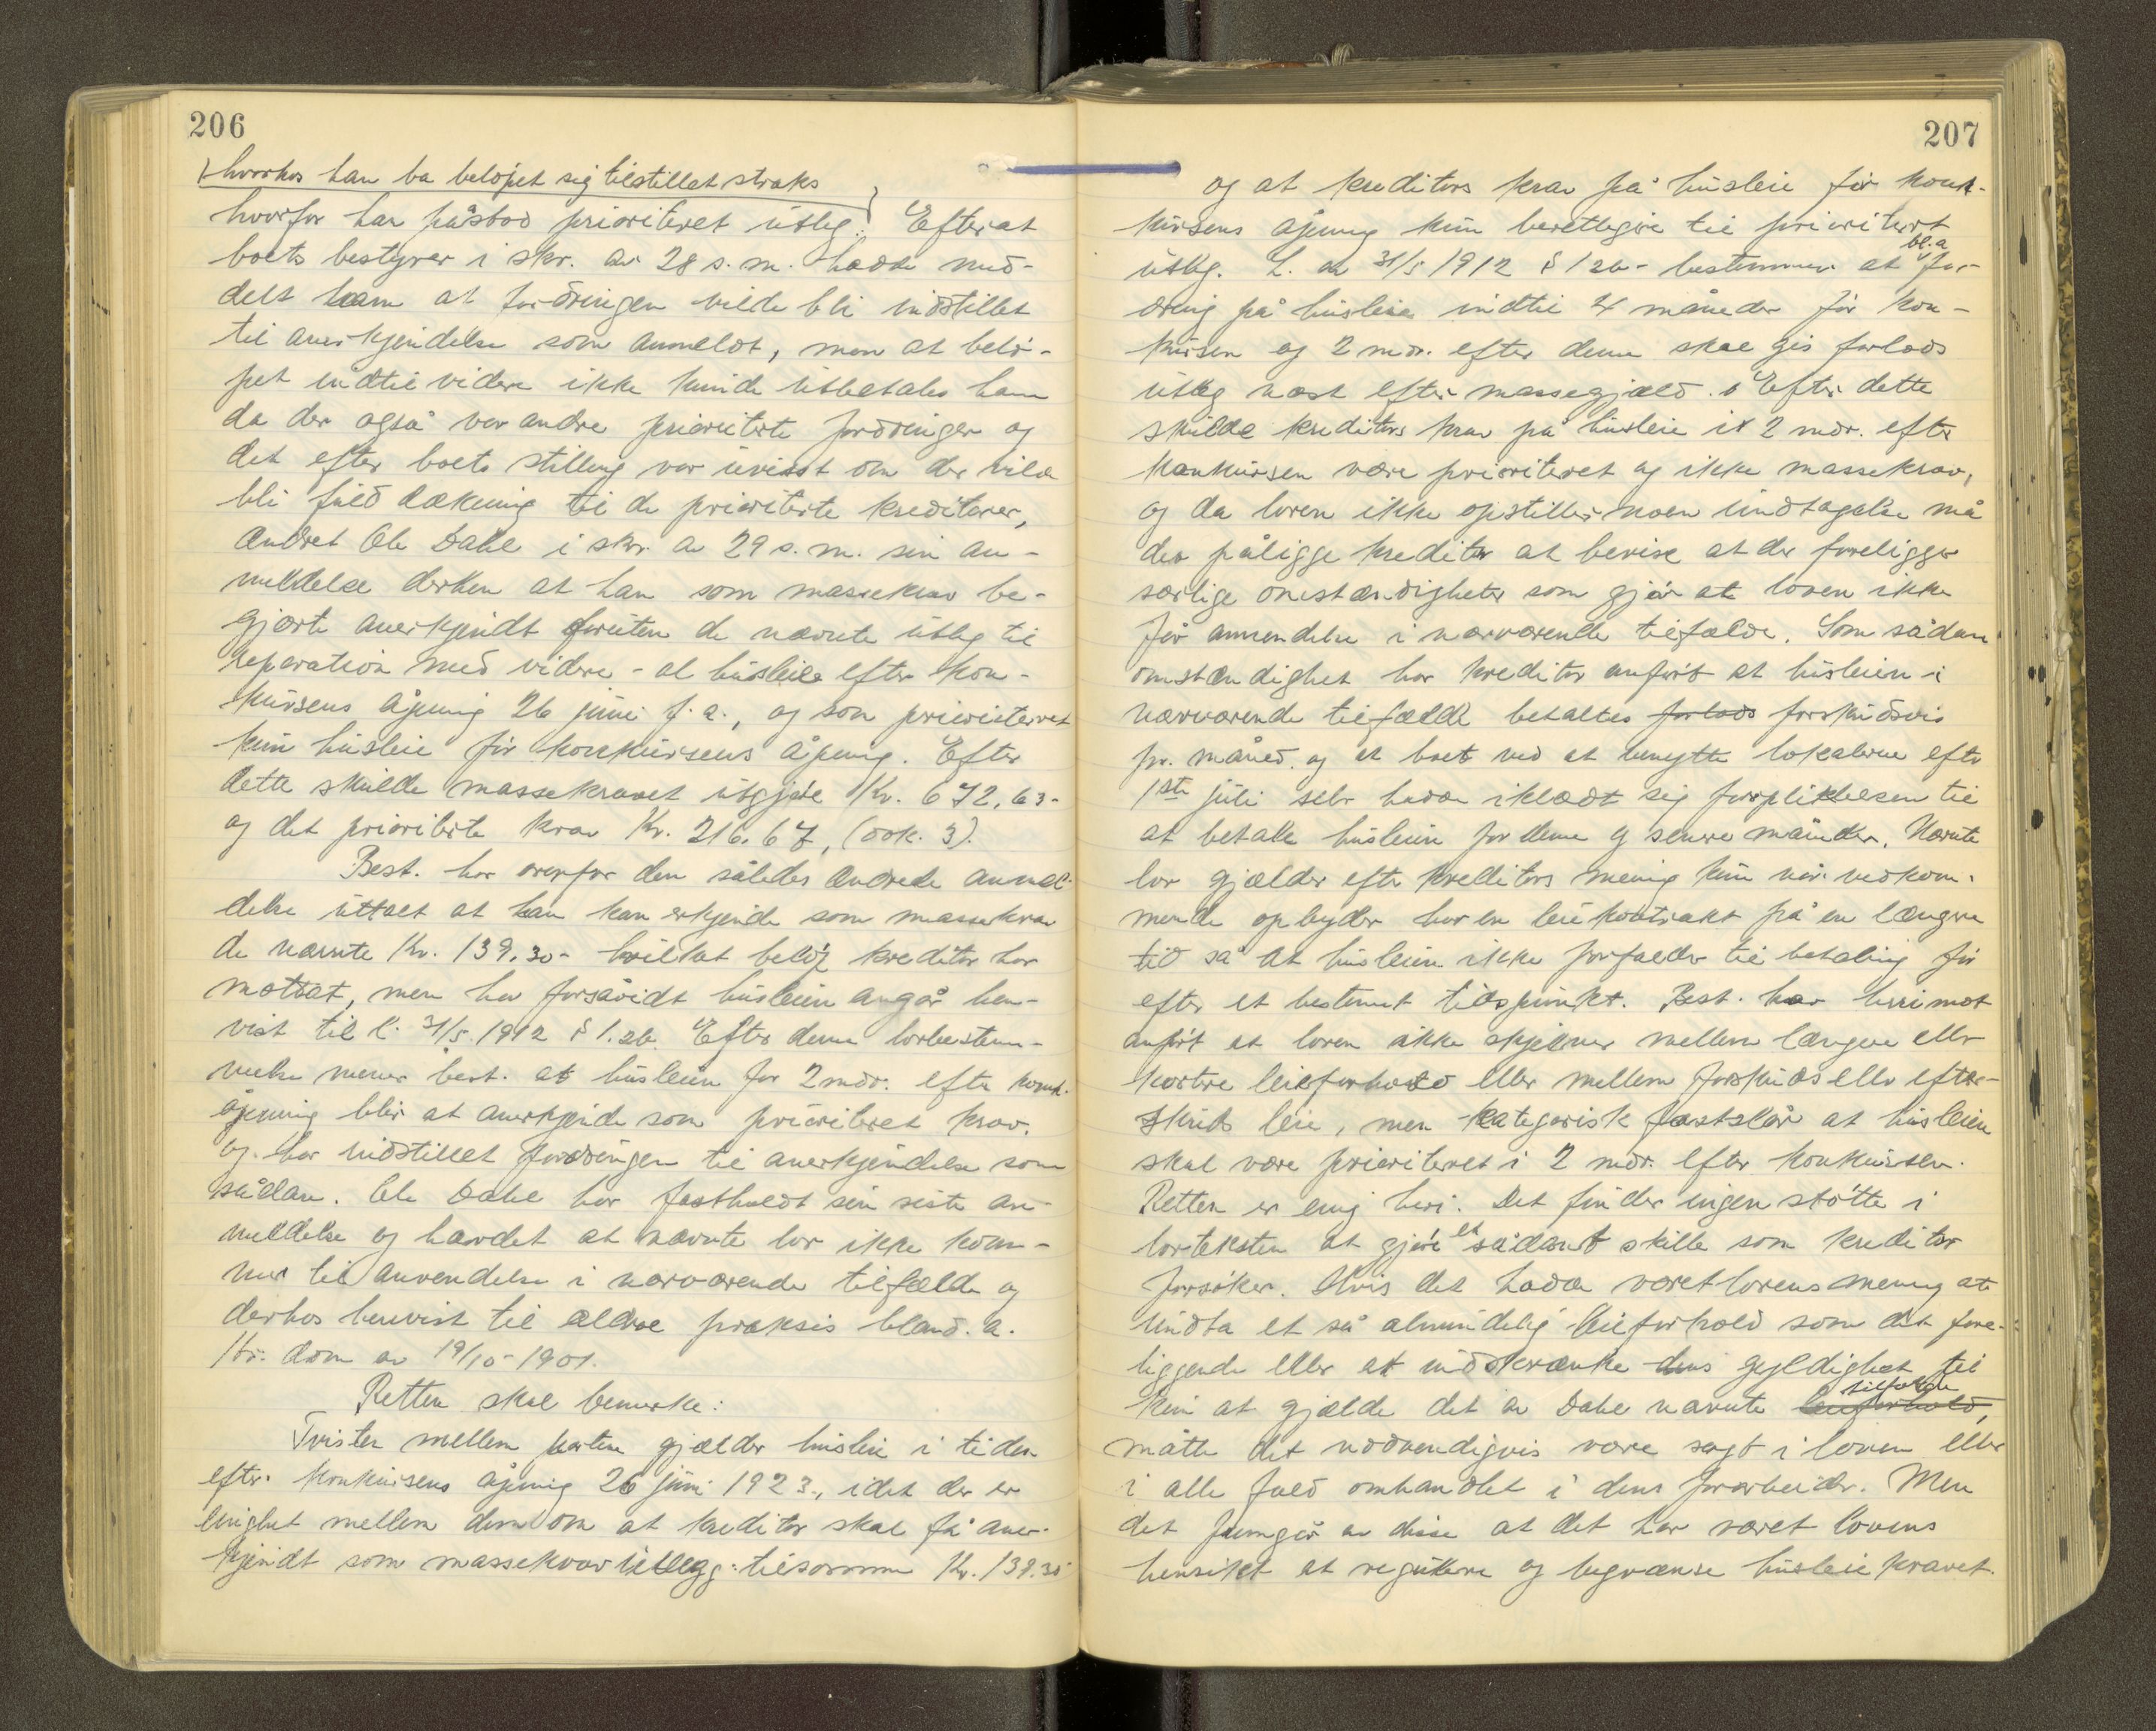 206
hvorhos han ba beløpet sig tilstillet straks
hvorfor han påstod prioriteret utlæg. Efterat
boets bestyrer i skr. av 28 s.m. hadde med-
delt ham at fordringen vilde bli indstillet
til anerkjendelse som anmeldt, men at belø-
pet indtil videre ikke kunde utbetales ham
da der også var andre prioriterte fordringer og
det efter boets stilling var uvisst om der vilde
bli fuld dækning til de prioriterte kreditorer,
ændret Ole Dahl i skr. av 29 s.m. sin an-
meldelse derhen at han som massekrav be-
gjærte anerkjendt foruten de nævnte utlæg til
reparation med videre - al husleie efter kon-
kursens åpning 26 juni f.a., og som prioriteret
kun husleie før konkursens åpning. Efter
dette skulde massekravet utgjøre Kr. 672,63-
og det prioriterte krav Kr. 216,67, (dok. 3).
Best. har overfor den således ændrede anmel-
delse uttalt at han kan erkjende som massekrav
de nævnte Kr. 139,30- hvilket beløp kreditor har
mottat, men har forsåvidt husleien angår hen-
vist til l. 31/5 1912 § 1.2b. Efter denne lovbestem-
melse mener best. at husleien for 2 mdr. efter konk.
åpning blir at anerkjende som prioriteret krav.
og har indstillet fordringen til anerkjendelse som
sådan. Ole Dahl har fastholdt sin siste an-
meldelse og hævdet at nævnte lov ikke kom-
mer til anvendelse i nærværende tilfælde og
derhos henvist til ældre praksis bland. a.
Hr. dom av 19/10 1901.
Retten skal bemerke:
Tvisten mellem partene gjælder husleie i tiden
efter konkursens åpning 26 juni 1923, idet der er
enighet mellem dem om at kreditor skal få aner-
kjendt som massekrav utlæg: tilsammen Kr. 139.30
207
og at kreditors krav på husleie før konk-
kursens åpning kun berettigere til prioritert
utlæg. L. av 31/5 1912 § 1 2b- bestemmer at bl.a for-
dring på husleie indtil 4 måneder før kon-
kursen og 2 mdr. efter denne skal gis forlods
utlæg næst efter massegjæld. Efter dette
skulde kreditors krav på husleie i 2 mdr. efter
konkursen være prioriteret og ikke massekrav,
og da loven ikke opstiller noen undtagelse må
det påligge kreditor at bevise at der foreligger
særlige omstændigheter som gjør at loven ikke
får anvendelse i nærværende tilfælde. Som sådan
omstændighet har kreditor anført at husleien i
nærværende tilfælde betaltes forlods forskudsvis
pr. måned og at boet ved at benytte lokalerne efter
1ste juli selv hadde iklædt sig forpliktelsen til
at betale husleien for denne og senere måneder. Nævnte
lov gjælder efter kreditors mening kun når vedkom-
mende opbyder har en leiekontrakt på en længere
tid så at husleien ikke forfalder til betaling før
efter et bestemt tidspunkt. Best. har herimot
anført at loven ikke skjelner mellem længere eller
kortere leieforhold eller mellem forskuds eller efter-
skuds leie, men kategorisk fastslår at husleien
skal være prioriteret i 2 mdr. efter konkursen.
Retten er enig heri. Det finder ingen støtte i
lovteksten at gjøre et sådant skille som kreditor
forsøker. Hvis det hadde været lovens mening at
undta et så almindelig leieforhold som det fore-
liggende eller at indskrænke dens gyldighet til
kun at gjælde det av Dahl nævnte leieforhold, tilfælde
måtte det nødvendigvis være sagt i loven eller
i alle fald omhandlet i dens forarbeider. Men
det fremgår av disse at det har været lovens
hensikt at regulere og begrænse husleiekravet.